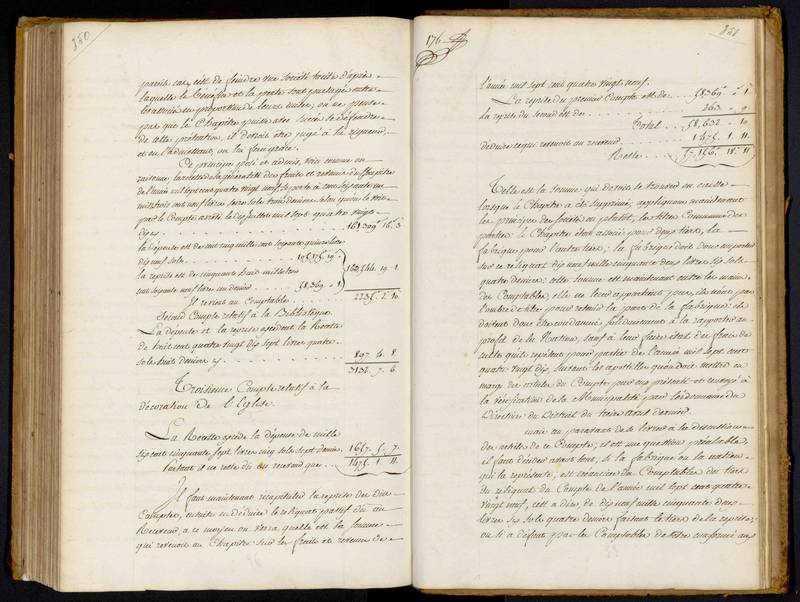 350
pareils cas, est de feindre une société tacite d'après
laquelle le Bénéfice et la perte sont partagés entre
les associés en proportion de leurs mises, on ne pense
pas que le Chapitre puisse avec succès se défendre
de cette prétention, il devroit être jugé à la rigueur,
et en l'admettant, on lui fera grace.
Ce principe posé et admis, voici comme on
raisonne, la recette de la généralité des fruits et revenus du Chapitre
de l'année mil sept cent quatre vingt neuf se porte à cent soixante un
mille trois cent neuf livres seize sols trois deniers selon qu'on le voit
par le Compte arrêté le dix juillet mil sept quatre vingt
dix, . . . 161,309 " 16 " 3
la dépense est de cent cinq mille
dix neuf sols . . . 19
la reprise est de cinquante huit mille trois
cent soixante neuf livres un denier . . . 58,369 " 1
Il revient au Comptable . . . 2235 " 2 " 10
Second Compte relatif à la Bibliotèque
La dépense et la reprise excèdent la Recette
de huit cent quatre vingt dix sept livres quatre
sols huit deniers cy . . . 897 " 6 " 8
3132 " 7 " 6
Troisieme Compte relatif à la
décoration de l'Eglise.
La Recette excède la dépense de mille
six cent cinquante sept livres cinq sols sept deniers 1657 " 5 " 7
Partant il ne reste du au revenant que . . 1475 " 1 " 11
Il faut maintenant récapituler la reprise des deux
Comptes, ensuite en déduire le reliquat passif du au
Revenant, à ce moyen on verra quelle est la somme
qui revenoit au Chapitre sur les fruits et revenus de
176
351
l'année mil sept cent quatre vingt neuf.
La reprise du premier Compte est de . . . 58,369 " 1
la reprise du second est de . . . 263 " 9
Total . . 58,632 " 10
déduire ce qui revenoit au revenant . . . 1475 " 1 " 11
Reste . . . 57,156 " 18 " 11
Telle est la somme qui devoit se trouver en caisse
lorsque le Chapitre a été suprimé; appliquons maintenant
les principes des sociétés ou plutôt, les titres Communs des
parties. le Chapitre étoit associé pour deux tiers, la
fabrique pour l'autre tiers; la fabrique doit donc emporter
sur ce reliquat dix neuf mille cinquante deux livres six sols
quatre deniers; cette somme est maintenant entre les mains
des Comptables; elle ne leur appartient pas, ils n'ont pas
l'ombre de titre pour retenir la part de la fabrique; ils
doivent donc être condamnés solidairement à la rapporter au
profit de la Nation, sauf à leur faire état des forcés de
recette qui rejettent pour partie de l'année mil sept cent
quatre vingt dix, suivant les apostilles qu'on doit mettre en
marge des articles du Compte pour eux présenté et renvoyé à
la vérification de la Municipalité par l'ordonnance du
Directoire du District du treize Avril dernier.
mais au paravant de se livrer à la discussion
des articles de ce Compte, il est une question préalable,
il faut décider avant tout, si la fabrique ou la nation
qui la représente, est créancière des Comptables du tiers
du reliquat du Compte de l'année mil sept cent quatre
vingt neuf, c'est à dire de dix neuf mille cinquante deux
livres six sols quatre deniers faisant le tiers de la reprise;
ou si à défaut par les Comptables de s'être conformé aux